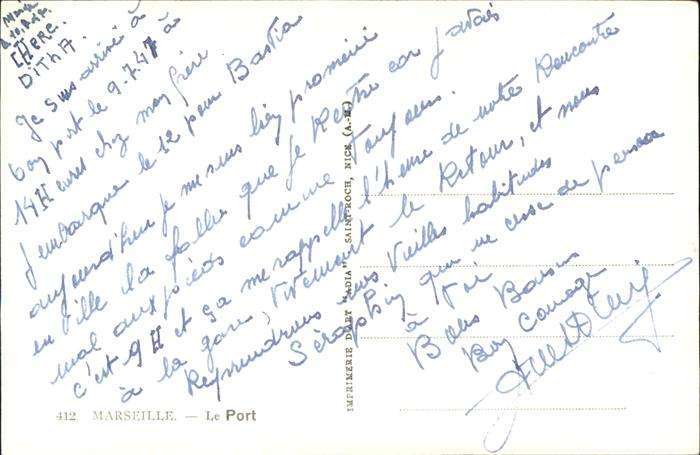 CHÈRE.
DITHA.
Je suis arrivé à
bon port le 9.7.47 à
14H avec chez mon frère
J'embarque le 12 pour Bastia
aujourd'hui je me suis bien promené
en ville la que je Rentre car j'avais
mal aux pieds comme Toujours.
c'est 9H et ça me rappelle l'heure de notre Rencontre
à la gare, Vivement le Retour, et nous
Reprendrons nos Vieilles habitudes
Séraphin qui ne cesse de penser
à Toi
Bons Baisers
Bon Courage
412 MARSEILLE. — Le Port
IMPRIMERIE D'ART "ADIA" SAINT-ROCH, NICE (A.-M.)